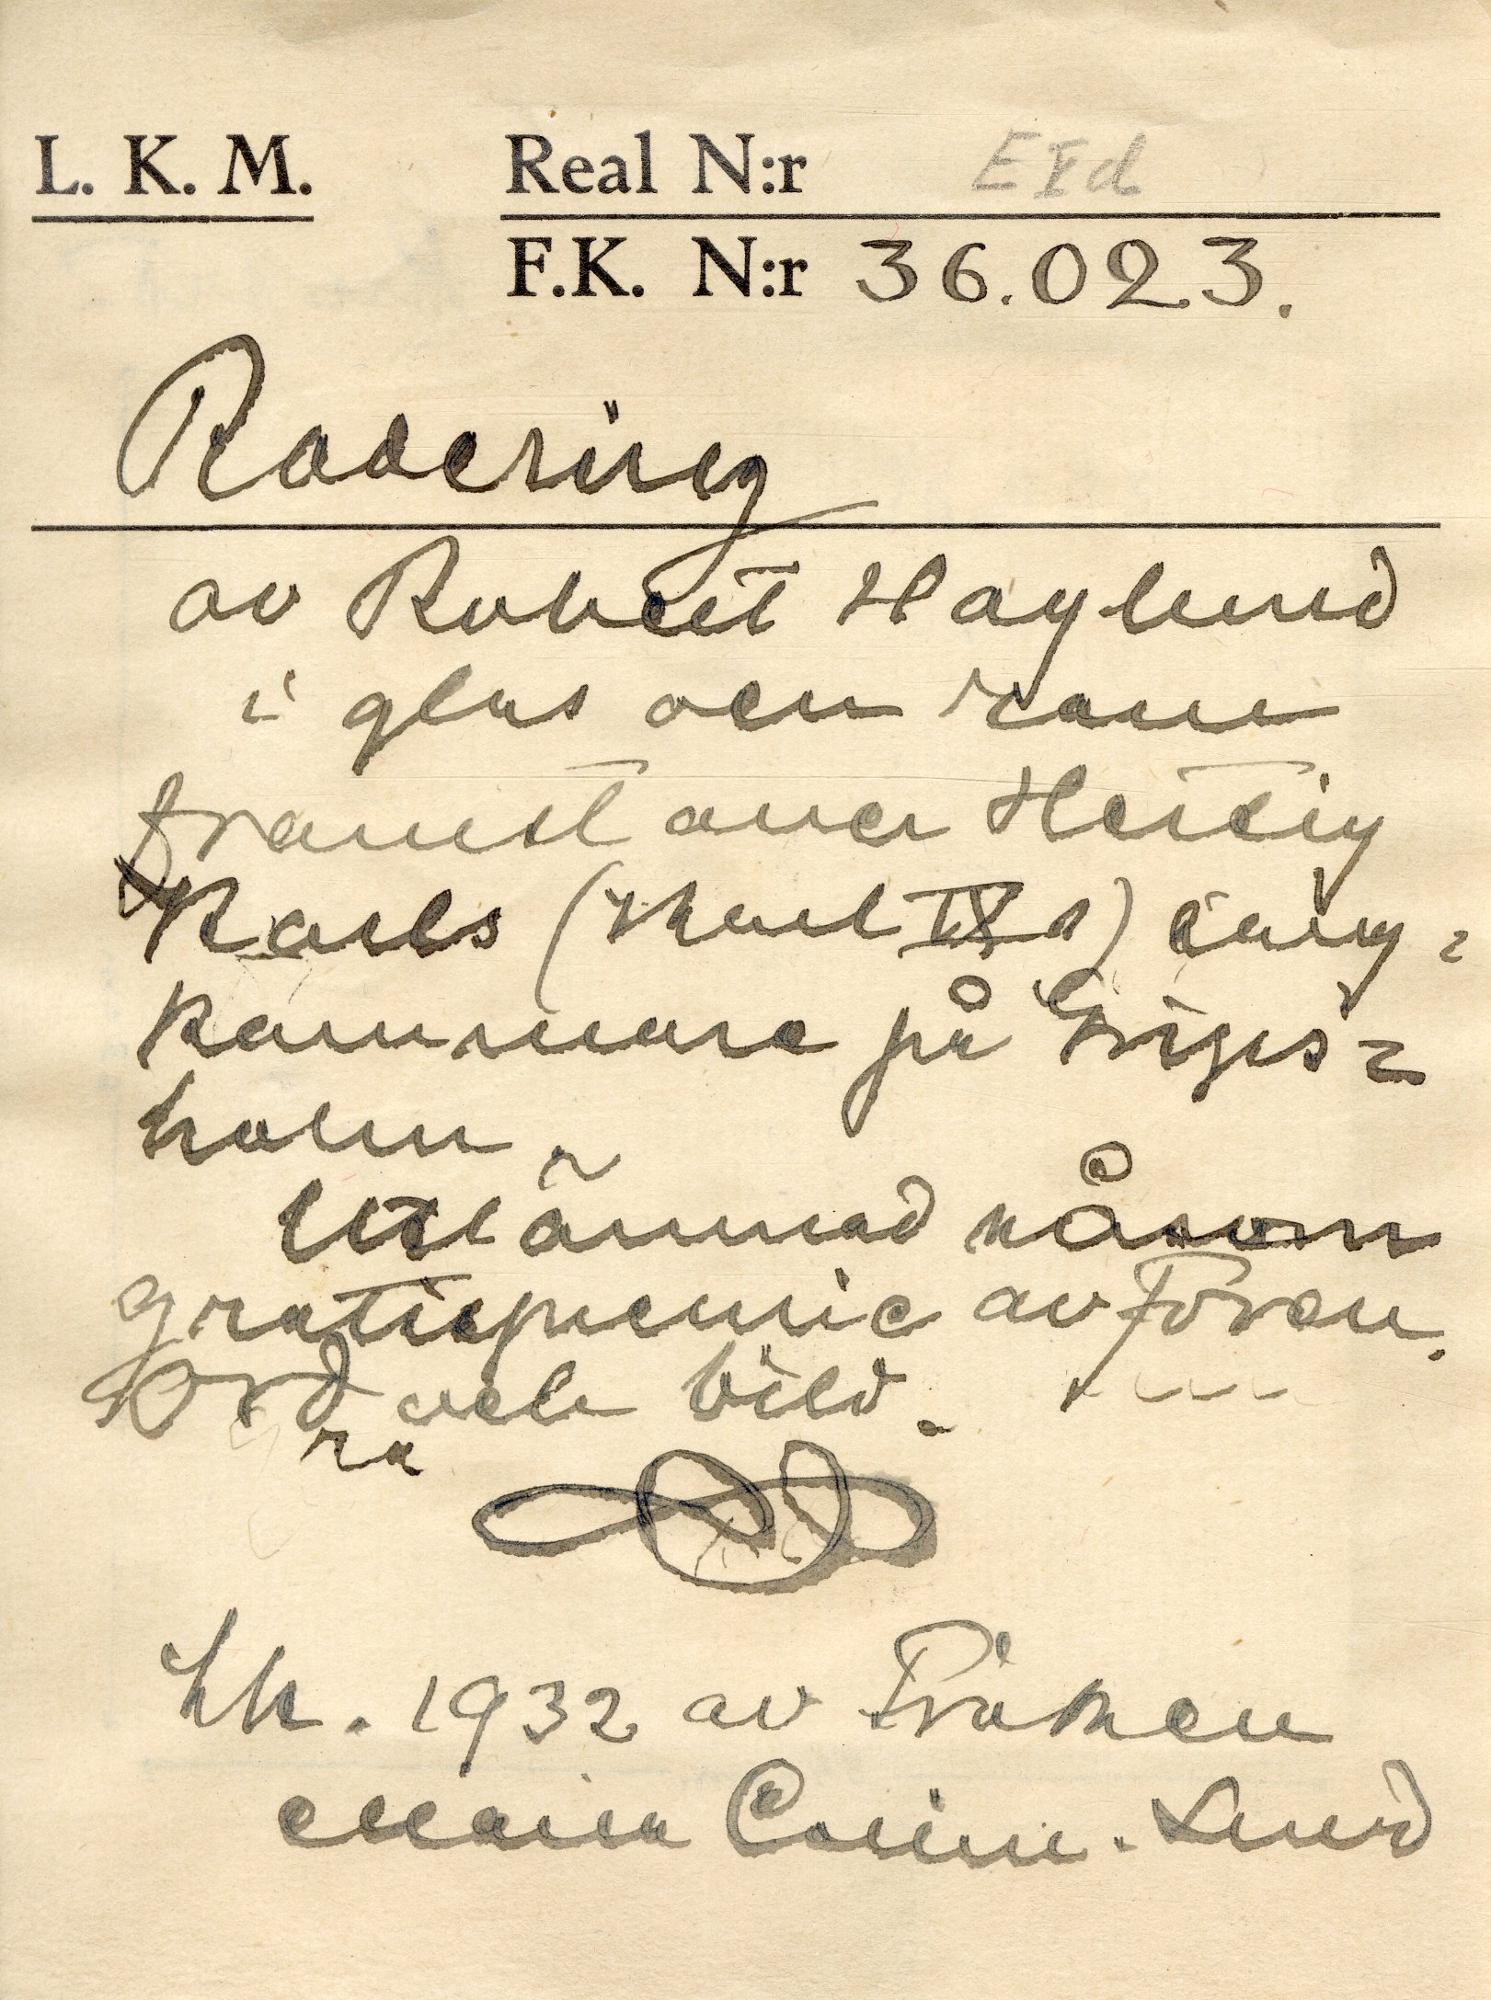 L. K. M. Real N:r EId
F.K. N:r 36.023.
Radering
av Robert Haglund
i glas och ram
framst
Karls (Karl IX s)
kammare på Grips=
holm.
Utlämnad såsom
gratispremie av Fören.
Ord och bild.
Sk. 1932 av Fröken
Maria Collin. Lund